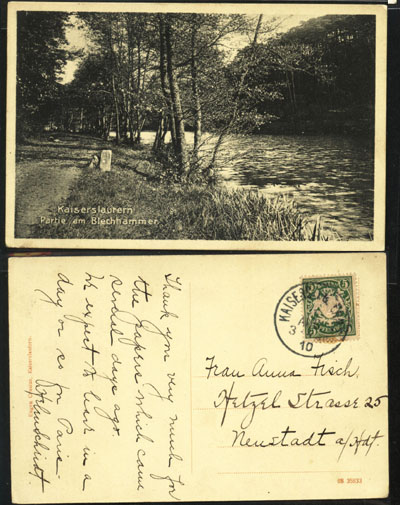 Kaiserslautern
Partie am Blechhammer
Thank you very much for
the papers which came
several days ago.
We expect to leave in a
day or so for Paris
KAISER
10
5
Frau Anna Fisch,
Hetzel Strasse 25
Neustadt a/Hdt.